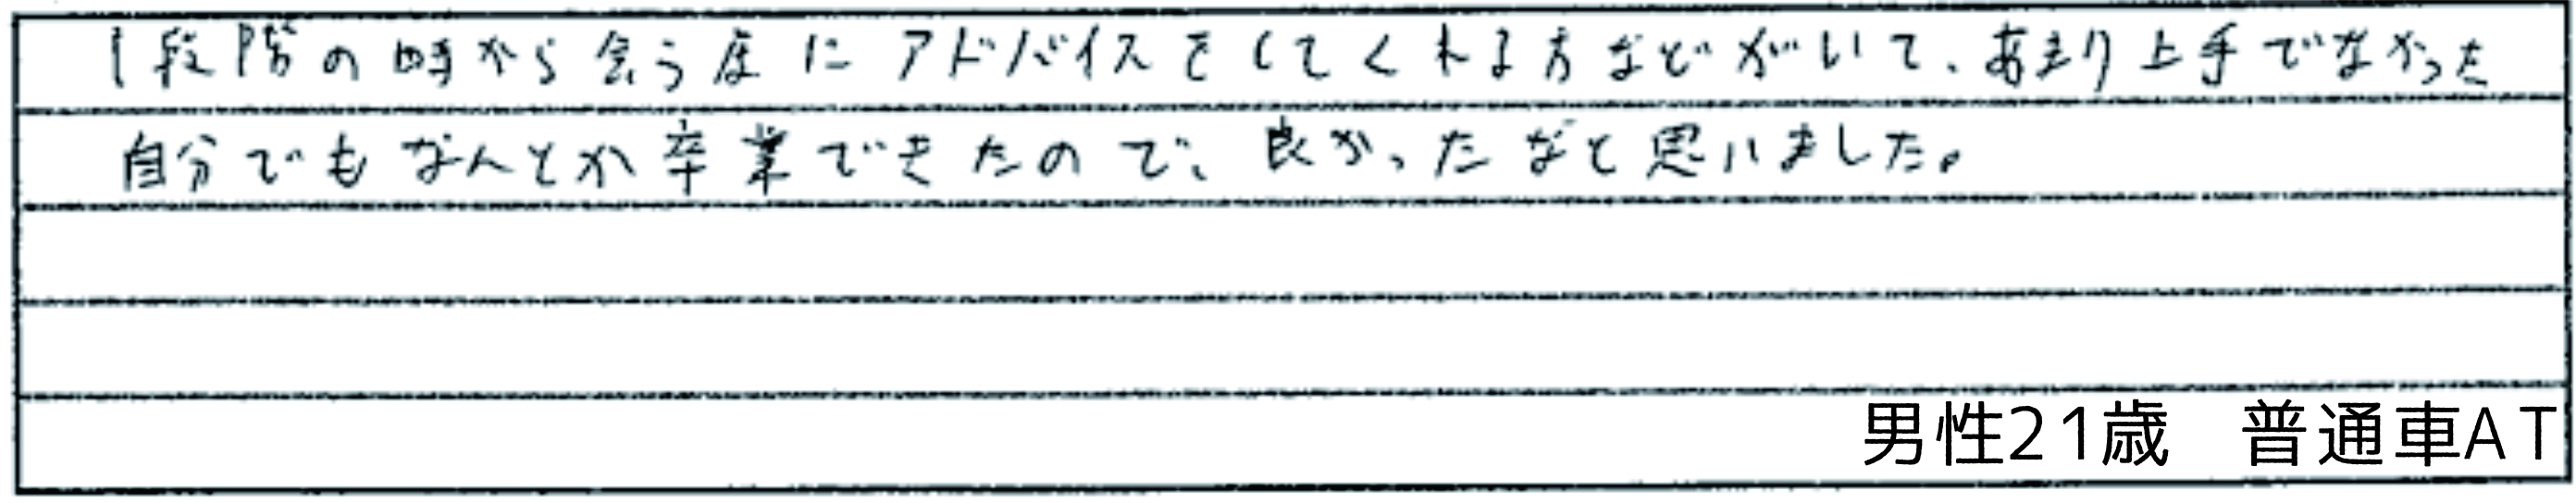 1段階の時から会う度にアドバイスをしてくれる方などがいて、あまり上手でなかった
自分でもなんとか卒業できたので、良かったなと思いました。
男性21歳 普通車AT